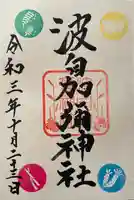 波自加彌神社
令和三年十月二十三日